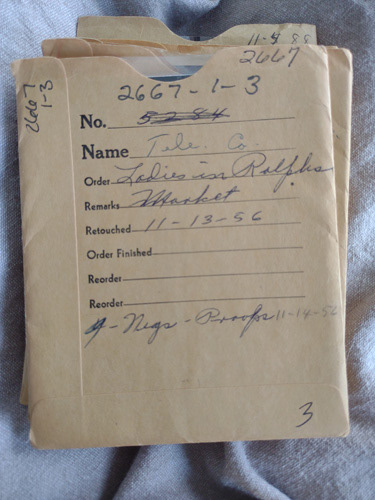 11-9 88
2667
2667
1-3
2667-1-3
No. 5284
Name Tele. Co.
Order Ladies in Ralphs
Remarks Market
Retouched 11-13-56
Order Finished
Reorder
Reorder
Negs - Proofs 11-14-56
3